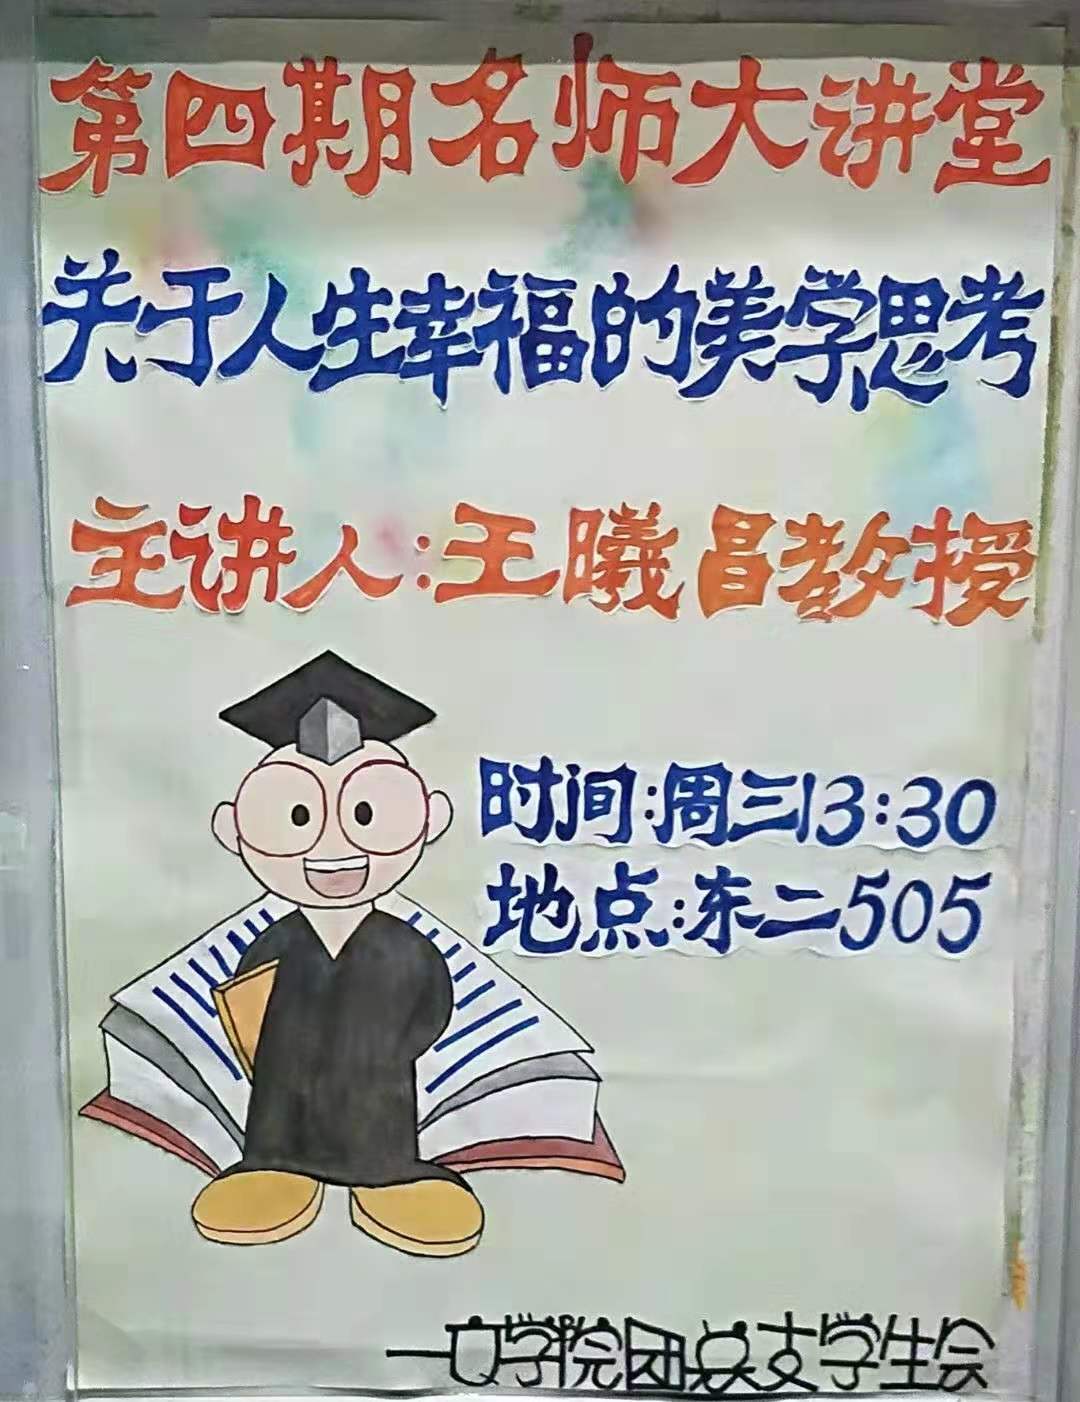 第四期名师大讲堂
关于人生幸福的美学思考
主讲人:王曦昌教授
时间:周三13:30
地点:东二505
学院团总支学生会